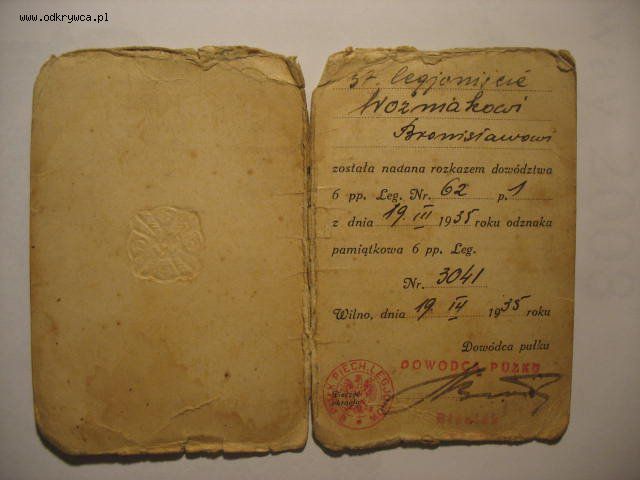 www.odkrywca.pl
st. legjoniście
Woźniakowi
Bronisławowi
została nadana rozkazem dowództwa
6 pp. Leg. Nr. 62 p. 1
z dnia 19 III 1935 roku odznaka
pamiątkowa 6 pp. Leg.
Nr. 3041
Wilno, dnia 19 III 1935 roku
Dowódca pułku
DOWÓDCA PUŁKU
Pieczęć
okrągła
PIECH. LEGJONÓW